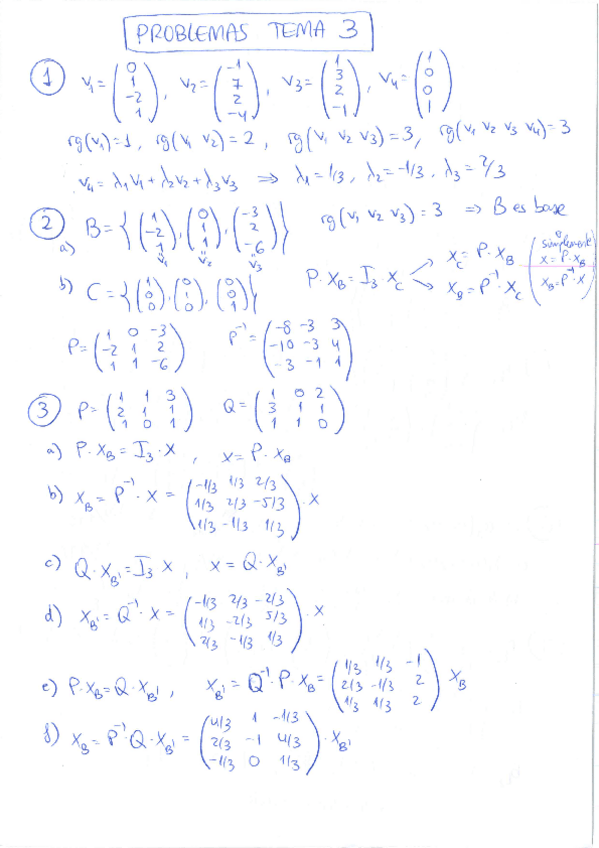 PROBLEMAS TEMA 3
① v₁ = (0 1 -2 1), v₂ = (-1 7 2 -4), v₃ = (1 3 2 -1), v₄ = (1 0 0 1)
rg(v₁)=1, rg(v₁ v₂)=2, rg(v₁ v₂ v₃)=3, rg(v₁ v₂ v₃ v₄)=3
v₄ = λ₁v₁ + λ₂v₂ + λ₃v₃ ⇒ λ₁ = 1/3, λ₂ = -1/3, λ₃ = 2/3
② a) B = {(1 -2 1), (0 1 1), (-3 2 -6)} rg(v₁ v₂ v₃) = 3 ⇒ B es base
v₁ v₂ v₃
b) C = {(1 0 0), (0 1 0), (0 0 1)} P·X_B = I₃·X_C
X_C = P·X_B
X_B = P⁻¹·X_C
(o simplemente
X = P·X_B
X_B = P⁻¹·X)
P = (1 0 -3
-2 1 2
1 1 -6) P⁻¹ = (-8 -3 3
-10 -3 4
-3 -1 1)
③ P = (1 1 3
2 1 1
1 0 1) Q = (1 0 2
3 1 1
1 1 0)
a) P·X_B = I₃·X, X = P·X_B
b) X_B = P⁻¹·X = (-1/3 1/3 2/3
1/3 2/3 -5/3
1/3 -1/3 1/3)·X
c) Q·X_B' = I₃ X, X = Q·X_B'
d) X_B' = Q⁻¹·X = (-1/3 2/3 -2/3
1/3 -2/3 5/3
2/3 -1/3 1/3)·X
e) P·X_B = Q·X_B', X_B' = Q⁻¹·P·X_B = (1/3 1/3 -1
2/3 -1/3 2
1/3 1/3 2) X_B
f) X_B = P⁻¹·Q·X_B' = (4/3 1 -1/3
2/3 -1 4/3
-1/3 0 1/3)·X_B'